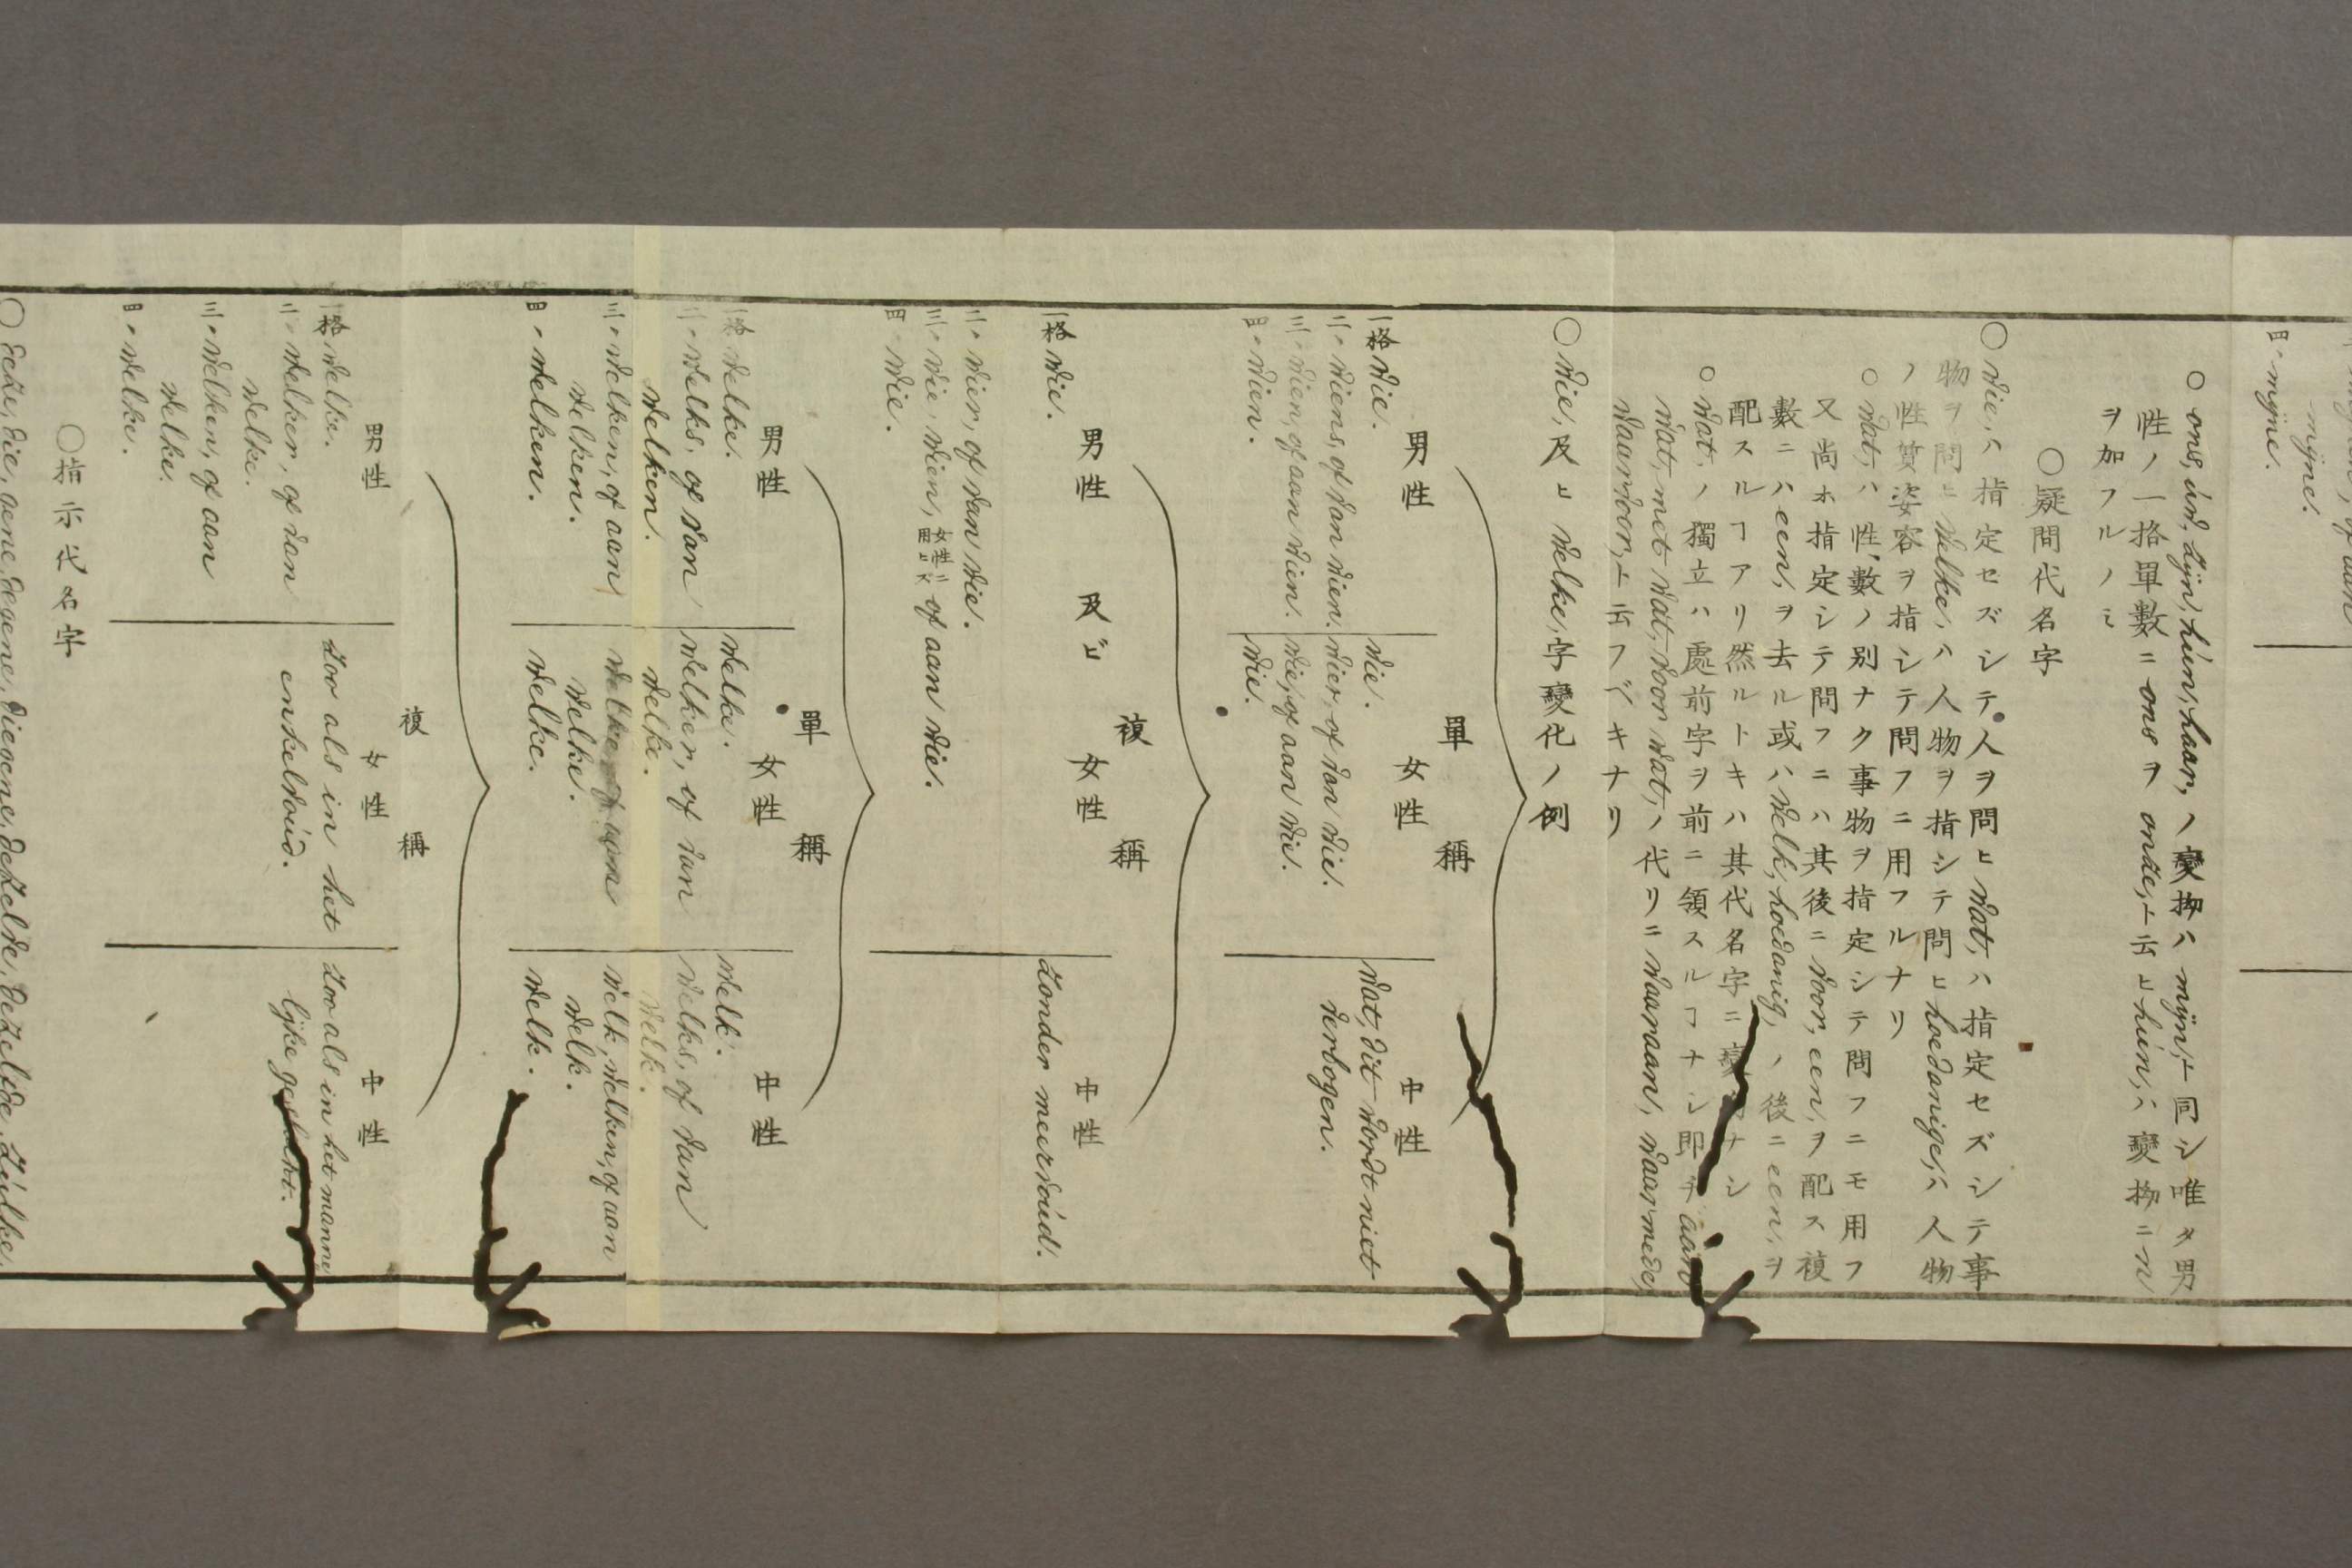 四〃 mijne.
mijne.
○ ons, uw, zijn, hun, haar, ノ變拗ハ mijn,ト同シ唯タ男
性ノ一格單數ニ ons ヲ onze,ト云ヒ hun,ハ變拗ニ n
ヲ加フルノミ
○疑問代名字
○ wie,ハ指定セズシテ人ヲ問ヒ wat,ハ指定セズシテ事
物ヲ問ヒ welke,ハ人物ヲ指シテ問ヒ hoedanige,ハ人物
ノ性質姿容ヲ指シテ問フニ用フルナリ
○ wat,ハ性數ノ別ナク事物ヲ指定シテ問フニモ用フ
又尚ホ指定シテ問フニハ其後ニ voor een,ヲ配ス複
數ニハ een,ヲ去ル或ハ welk, hoedanig,ノ後ニ een,ヲ
配スルヿアリ然ルトキハ其代名字ニ變拗ナシ
○ wat,ノ獨立ハ處前字ヲ前ニ領スルヿナシ即チ aan
wat, met wat, door wat,ノ代リニ waaraan, waarmede,
waardoor,ト云フベキナリ
○ wie,及ヒ welke,字變化ノ例
單稱
男性 女性 中性
一格 wie. wie. wat, dit wordt niet
二〃 wiens, of van wien. wier, of van wie. verbogen.
三〃 wien, of aan wien. wie, of aan wie.
四〃 wien. wie.
複稱
男性 及ビ 女性 中性
一格 wie. zonder meervoud.
二〃 wier, of van wie.
三〃 wie, wien, of aan wie.
四〃 wie.
單稱
男性 女性 中性
一格 welke. welke. welk.
二〃 welks, of van welker, of van welks, of van
welken. welke. welk.
三〃 welken, of aan welke, of aan welk, welken, of aan
welken. welke. welk.
四〃 welken. welke. welk.
複稱
男性 女性 中性
一格 welke. zoo als in het zoo als in het manne
二〃 welker, of van enkelvoud. lijke geslacht.
welke.
三〃 welken, of aan
welke.
四〃 welke.
○指示代名字
○ deze, die, gene, degene, diegene, dezelve, dezelfde, zulke,